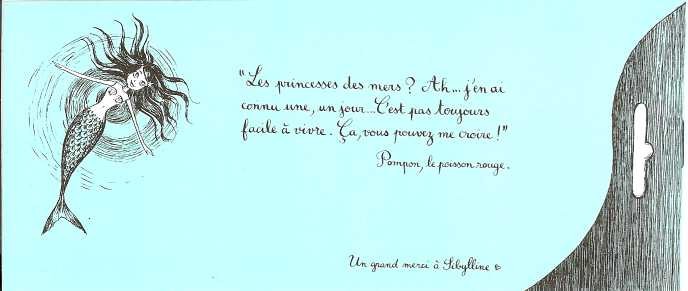 "Les princesses des mers ? Ah... j'en ai
connu une, un jour... C'est pas toujours
facile à vivre. Ça, vous pouvez me croire !"
Pompon, le poisson rouge.
Un grand merci à Sibylline